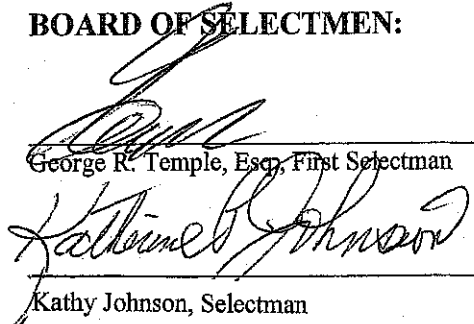 BOARD OF SELECTMEN:
George R. Temple, Esq, First Selectman
Katherine Johnson
Kathy Johnson, Selectman